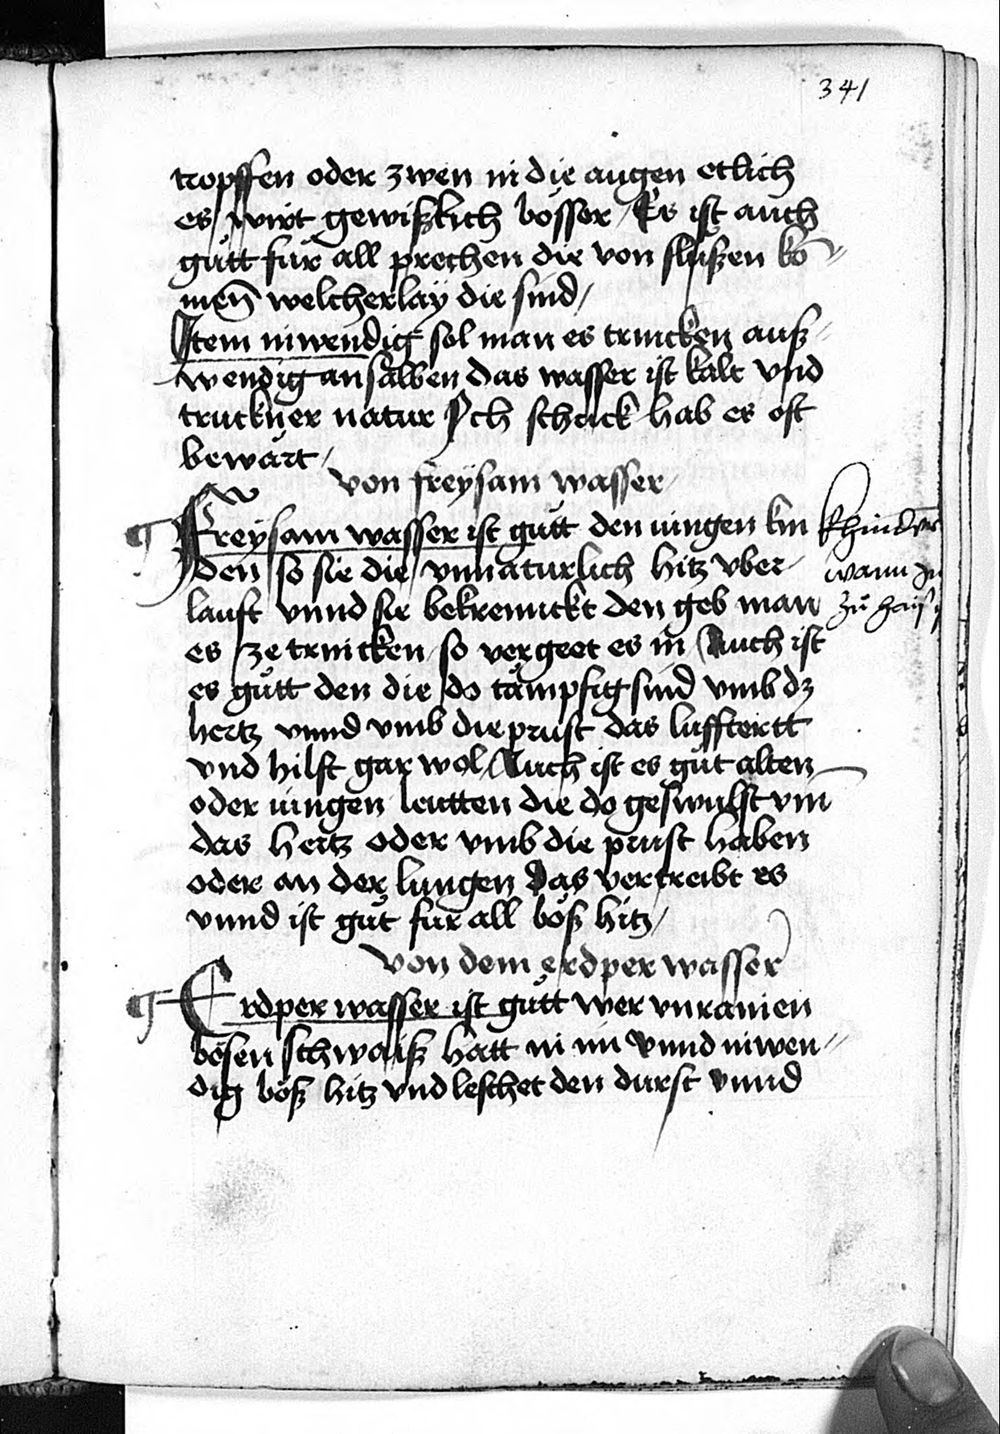 341
tropffen oder zwen in die augen etlich
es wirt gewißlich bösser / Es ist auch
gůtt für all prechen die von flüßen ko̅
men̅ welcherlaÿ die sind /
Item inwendig sol man es trincken auß
wendig an salben das wasser ist kalt vnd
truckner natur Ich schrick hab es oft
bewärt /
von freÿsam wasser /
Freÿsam wasser ist gůtt den iungen kin
den so sie die vnnaturlich hitz vber
lauft vnnd sie bekrenckt den geb man
es ze trincken so vergeet es in Auch ist
es gůtt den die do tämpfig sind vmb dz
hertz vnnd vmb die prust das lufftertt
vnd hilft gar wol / Auch ist es gůt alten
oder iungen leutten die do geswulst vm̅
das hertz oder vmb die prust haben
oder an der lungen Das vertreibt es
vnnd ist gůt für all böß hitz /
khinder
wann
zů
von dem erdper wasser
Erdper wasser ist gůtt wer vnrainen
bösen schwaiß hatt in im Vnnd inwen
dig böß hitz vnd leschet den durst vnnd